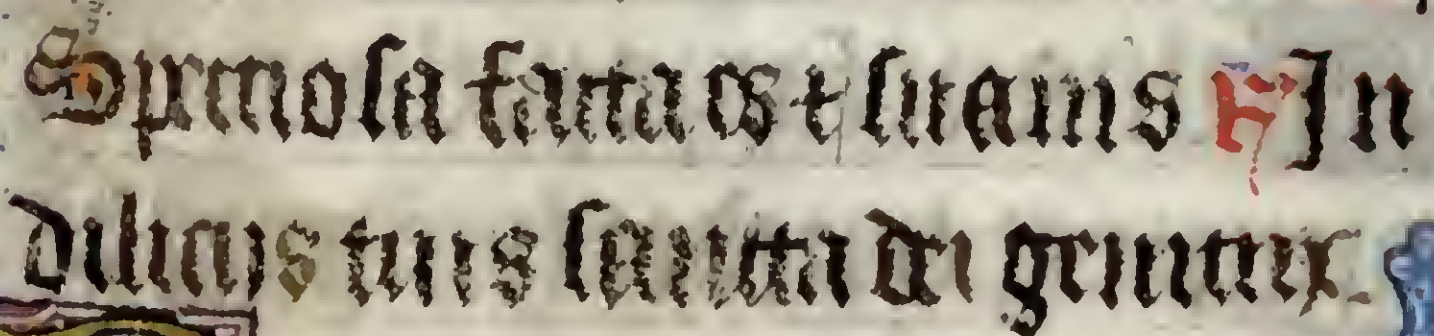 Speciosa facta es ⁊ suauis ℟ In
dilicijs tuis sancta dei genitrix.